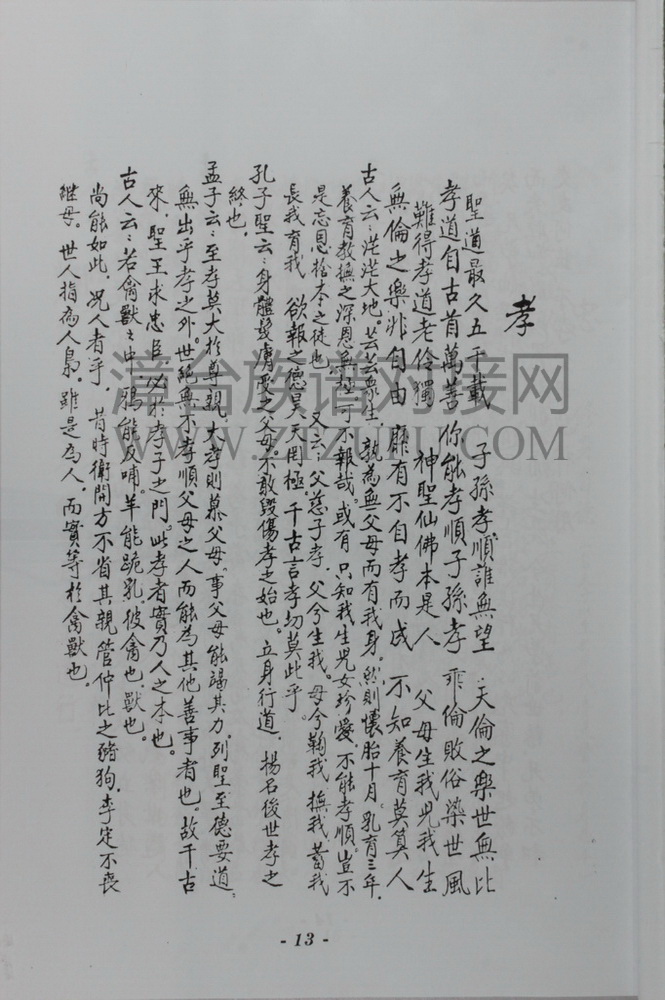 孝
聖道最久五千載 子孫孝順誰無望 天倫之樂世無比
孝道自古首萬善 你能孝順子孫孝 乖倫敗俗染世風
難得孝道老伶獨 神聖仙佛本是人 父母生我兒我生
無倫之樂非自由 靡有不自孝而成 不知養育莫算人
古人云：茫茫大地。芸芸眾生，孰為無父母而有我身。然則懷胎十月。乳育三年，
養育教撫之深恩無極，可不報哉。或有只知我生兒女珍愛，不能孝順。豈不
是忘恩於本之徒也 又云：父慈子孝，父兮生我。母兮鞠我，撫我，蓄我
長我育我 欲報之德昊天罔極。千古言孝切莫此乎。
孔子聖云：身體髮膚受之父母。不敢毀傷孝之始也。立身行道，揚名後世孝之
終也，
孟子云：至孝莫大於尊親，大孝則慕父母。事父母能竭其力。列聖至德要道；
無出乎孝之外。世絕無不孝順父母之人而能為其他善事者也。故千古
來，聖王求忠臣必於孝子之門。此孝者實乃人之本也。
古人云：若禽獸之中，鴉能反哺。羊能跪乳，彼禽也，獸也。
尚能如此，况人者乎，昔時衛開方不省其親管仲比之豬狗，李定不喪
繼母。世人指為人梟。雖是為人，而實等於禽獸也。
- 13 -
漳台族谱对接网
WWW.ZTZUPU.COM